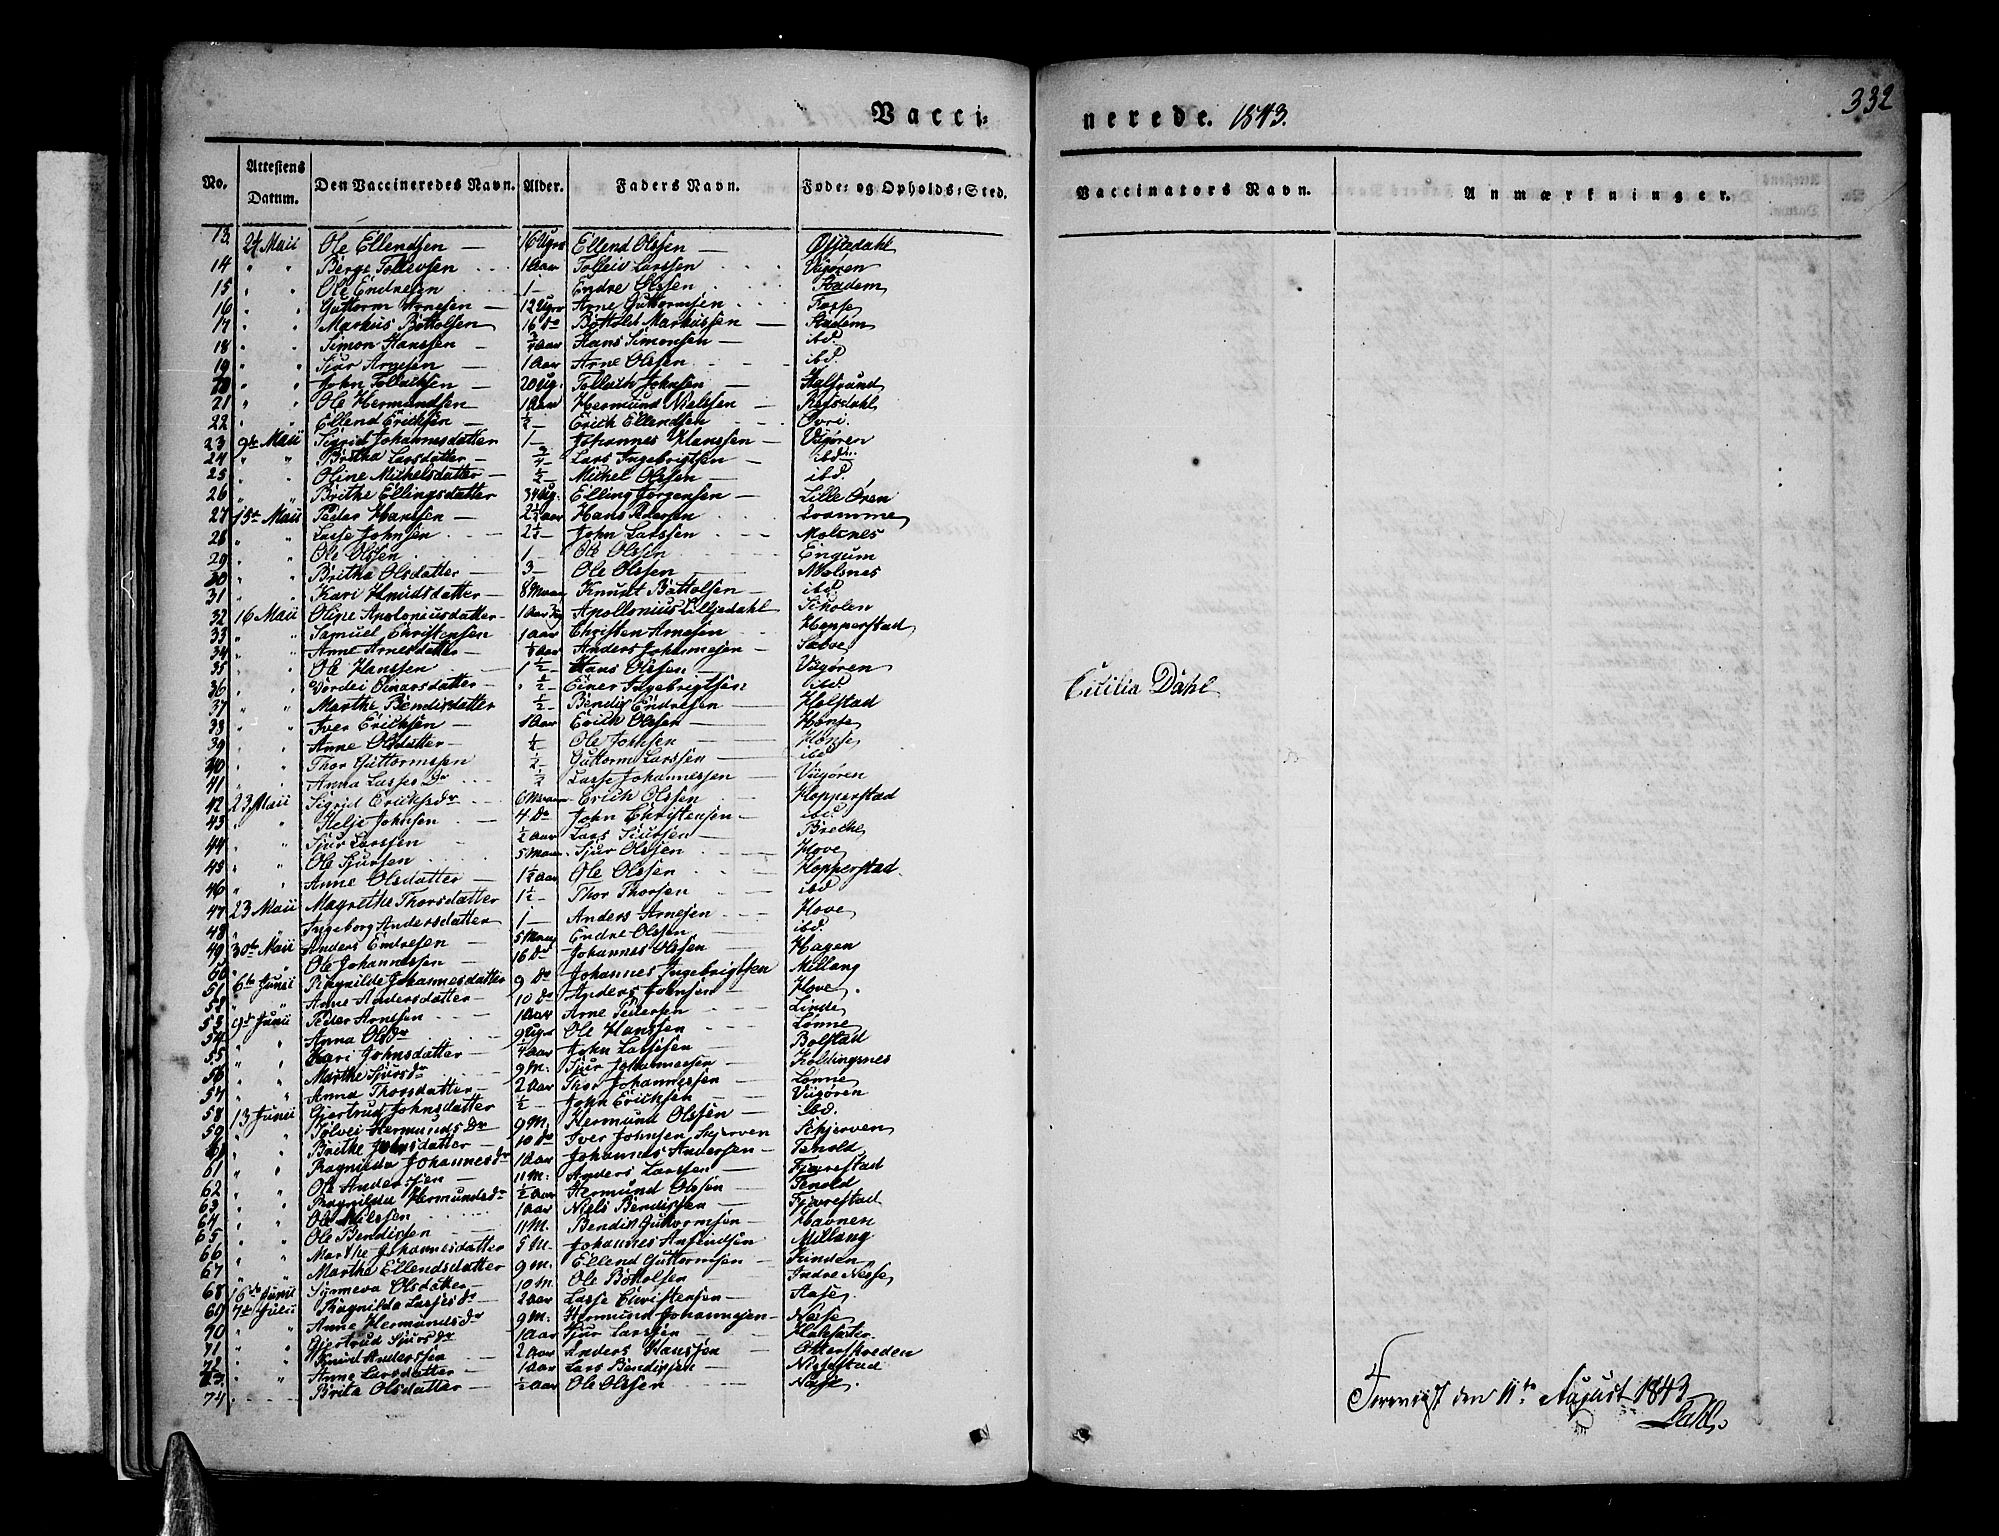 Vacci-
nerede. 1843.
332
No. Attestens Datum. Den Vaccineredes Navn. Alder. Faders Navn. Føde- og Opholds-Sted. Vaccinators Navn. Anmærkninger.
13. Maii Ole Ellendsen 16 Ugr Ellend Olssen
14 " " Børge Tollevsen 1 Aar Tolleiv Larssen Viigøren
15 " " Ole Endresen 1 — Endre Olssen Stadem
16 " " Guttorm Arnesen 12 Ugr Arne Guttormsen Fosse
17 " " Markus Bottolsen 16 do Bottolf Markussen Stadem
18 " " Simon Hanssen 3/4 Aar Hans Simonsen ibd.
19 " " Sjur Arnesen 1 Aar Arne Olssen ibd.
20 " " John Tolleivsen 20 Ug. Tolleich Johnsen
21 " " Ole Hermundsen 1 Aar Hermund Nielssen
22 " " Ellend Erichsen 1/2 — Erich Ellendsen Øvri
23 9de Maii Sigrid Johannesdatter 1 — Johannes Hanssen Viigøren
24 " " Britha Larsdatter 3/4 — Lars Ingebrigtsen ibd.
25 " " Oline Mickelsdatter 1/2 — Mickel Olssen ibd.
26 " " Brithe Ellingsdatter 34 Ug. Elling Jørgensen Lille Øren
27 15de Maii Peder Hanssen 2 1/2 Aar Hans Pedersen
28 " " Lasse Johnsen 2 1/2 — John Larssen Molsnes
29 " " Ole Olssen 1 — Ole Olssen Engum
30 " " Brithe Olsdatter 3 — Ole Olssen Molsnes
31 " " Kari Knudsdatter 8 Maan Knudt Bottolsen ibd.
32 16 Maii Oline Apoloniusdatter 1 Aar Apollonius Lilljedahl Sicholen
33 " " Samuel Christensen 1 Aar Christen Arnesen Hopperstad
34 " " Anne Arnesdatter Aar Anders Johannesen Sæbve
35 " " Ole Hanssen 1 1/2 — Hans Olssen Viigøren
36 " " Dordei Einarsdatter 1/2 — Einer Ingebrigtsen ibd.
37 " " Marthe Bendixdatter 1/2 — Bendix Endresen Holstad
38 " " Iver Erichsen 1 Aar Erich Olssen Hønse
39 " " Anne Olsdatter — Ole Johnsen Hønse
40 " " Thor Guttormssen 1/2 — Guttorm Larssen ibd.
41 " " Anna Lasses Dr 1/2 Lasse Johannessen Viigøren
42 23 Maii Sigrid Erichsdr 6 Maan Erich Olssen Hopperstad
43 " " Helje Johnsen 4 do John Christensen ibd.
44 " " Sjur Larssen 1/2 Aar Lars Siurssen Breche
45 " " Ole Sjursen 5 Maan Sjur Olssen Hove
46 " " Anne Olsdatter 1 1/2 Aar Ole Olssen Hopperstad
47 23 Maii Magrethe Thorsdatter 1 1/2 — Thor Thorsen ibd.
48 " Ingeborg Andersdatter 1 — Anders Arnesen Hove
49 30te Maii Anders Endresen 5 Maan Endre Olssen ibd.
50 " " Ole Johannessen 16 do Johannes Olssen Hagen
51 6te Junii Ragnilde Johannesdatter 9 do Johannes Ingebrigtsen Millang
52 " " Anne Andersdatter 10 do Anders Johnsen Hove
53 9de Junii Peder Arnesen 1 Aar Arne Pedersen Linde
54 " " Anna Olsdr 9 Ugr Ole Hanssen Lønne
55 " " Kari Johnsdatter Aar John Larssen Bolstad
56 " " Marthe Sjursdr 9 M. Sjur Johannessen Holdingsnes
57 " " Anna Thorsdatter 2 Aar Thor Johannessen Lønne
58 13 Junii Gjertrud Johnsdatter 1/2 — John Erichsen Viigøren
59 " " Sølvei Hermunds Dr 9 M. Hermund Olssen ibd.
" " Brithe Johnsdatter 10 do Iver Johnsen Skjerven Skjerven
61 " " Ragnilda Johannesdr 1 Aar Johannes Andersen Tenold
62 " " Ole Anderssen 11 M. Anders Larssen Fjærestad
63 " " Ragnilda Hermundsdr 1/2 Aar Hermund Olssen Tenold
64 " " Ole Nilssen 1 Aar Niels Bendixsen Fjærestad
65 " " Ole Bendixsen 11 M. Bendix Guttormsen Havnen
66 " " Marthe Johannesdatter 5 M. Johannes Anfindsen Millang
67 " " Martha Ellendsdatter 9 M. Ellend Guttormsen
68 16de Junii Synneva Olsdatter 10 M. Ole Bottolsen Indre Nesse
69 7de Ragnilda Lassesdr 2 Aar Lasse Christensen Aase
70 " " Anne Hermundsdr 9 M. Hermund Johannesen Nesse
71 " " Gjertrud Sjursdr 1 Aar Sjur Larssen
72 " " Knud Anderssen 2 Aar Anders Hanssen Otterskreden
73 " " Anne Larsdatter 1 Aar Lars Bendixsen
74 Brita Olsdatter 1/2 Aar Ole Olssen Nesse.
Cicilia Dahl
den 11te August 1843
Dahl.